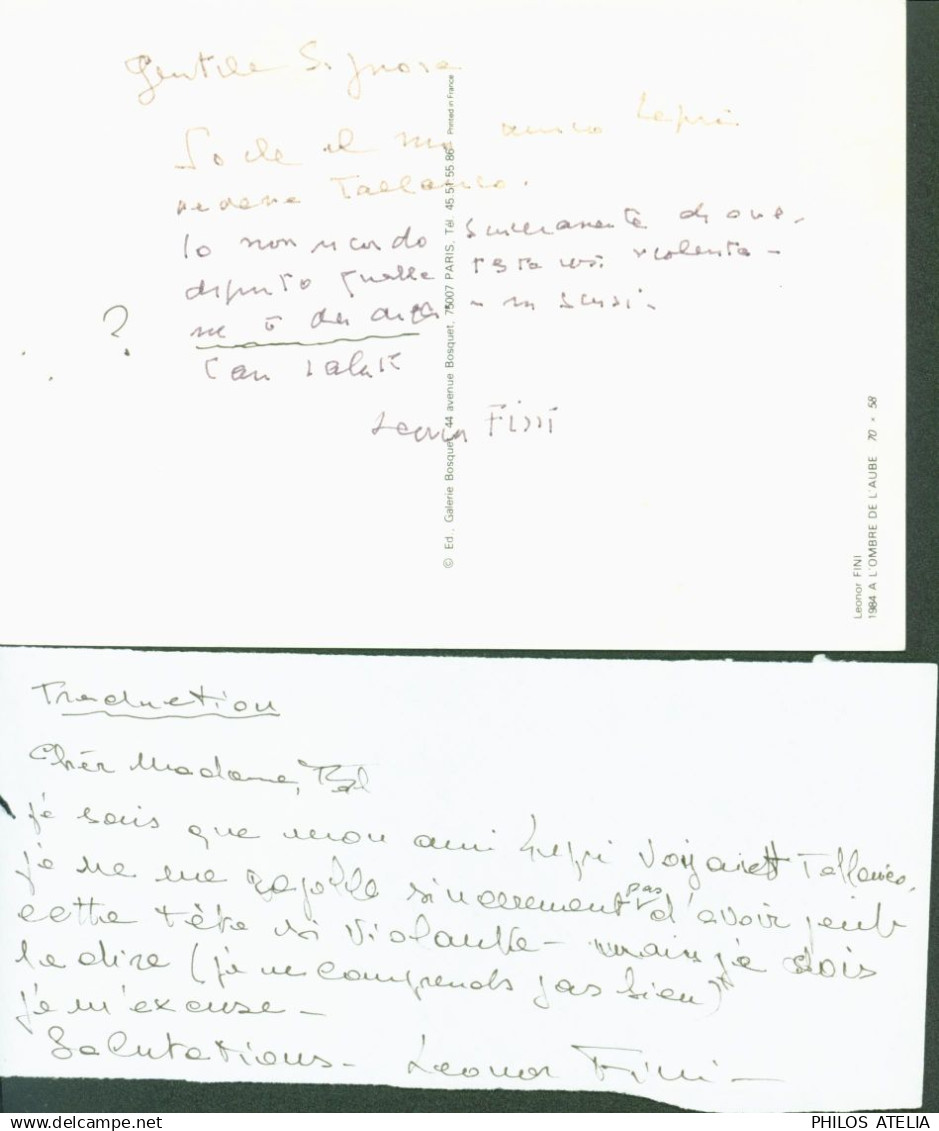 Gentile Signora
So che il mio amico Lepri
vedeva Tallarico.
Io non ricordo sinceramente di aver
dipinto quella testa così violenta -
?
mi scusi -
Con saluti
Leonor Fini
© Ed., Galerie Bosquet, 44 avenue Bosquet, 75007 PARIS, Tél. 45.51.55.86 Printed in France
Leonor FINI
1984 A L'OMBRE DE L'AUBE 70 x 58
Traduction
Chèr Madame,
je sais que mon ami Lepri voyait Tallarico.
je ne me rapelle sincerement pas d'avoir peint
cette tête si violante - mais je dois
le dire (je ne comprends pas bien)
je m'excuse -
Salutations - Leonor Fini -
PHILOS ATELIA